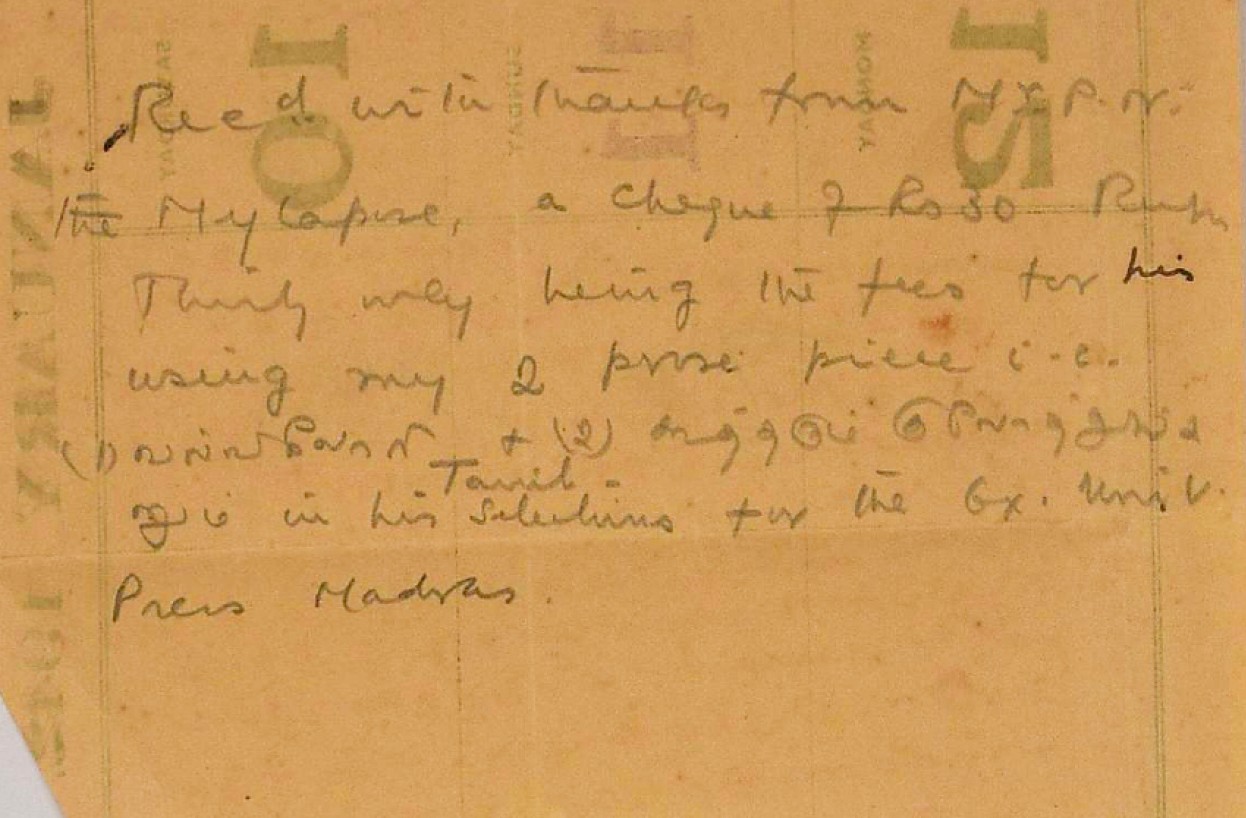 Recd with thanks from Mr. P. N.
the Mylapore, a cheque of Rs 30 Rupees
Thirty only being the fees for his
using my 2 prose piece i.e.
(1) + (2)
Tamil
in his Selections for the Ox. Univ.
Press Madras.